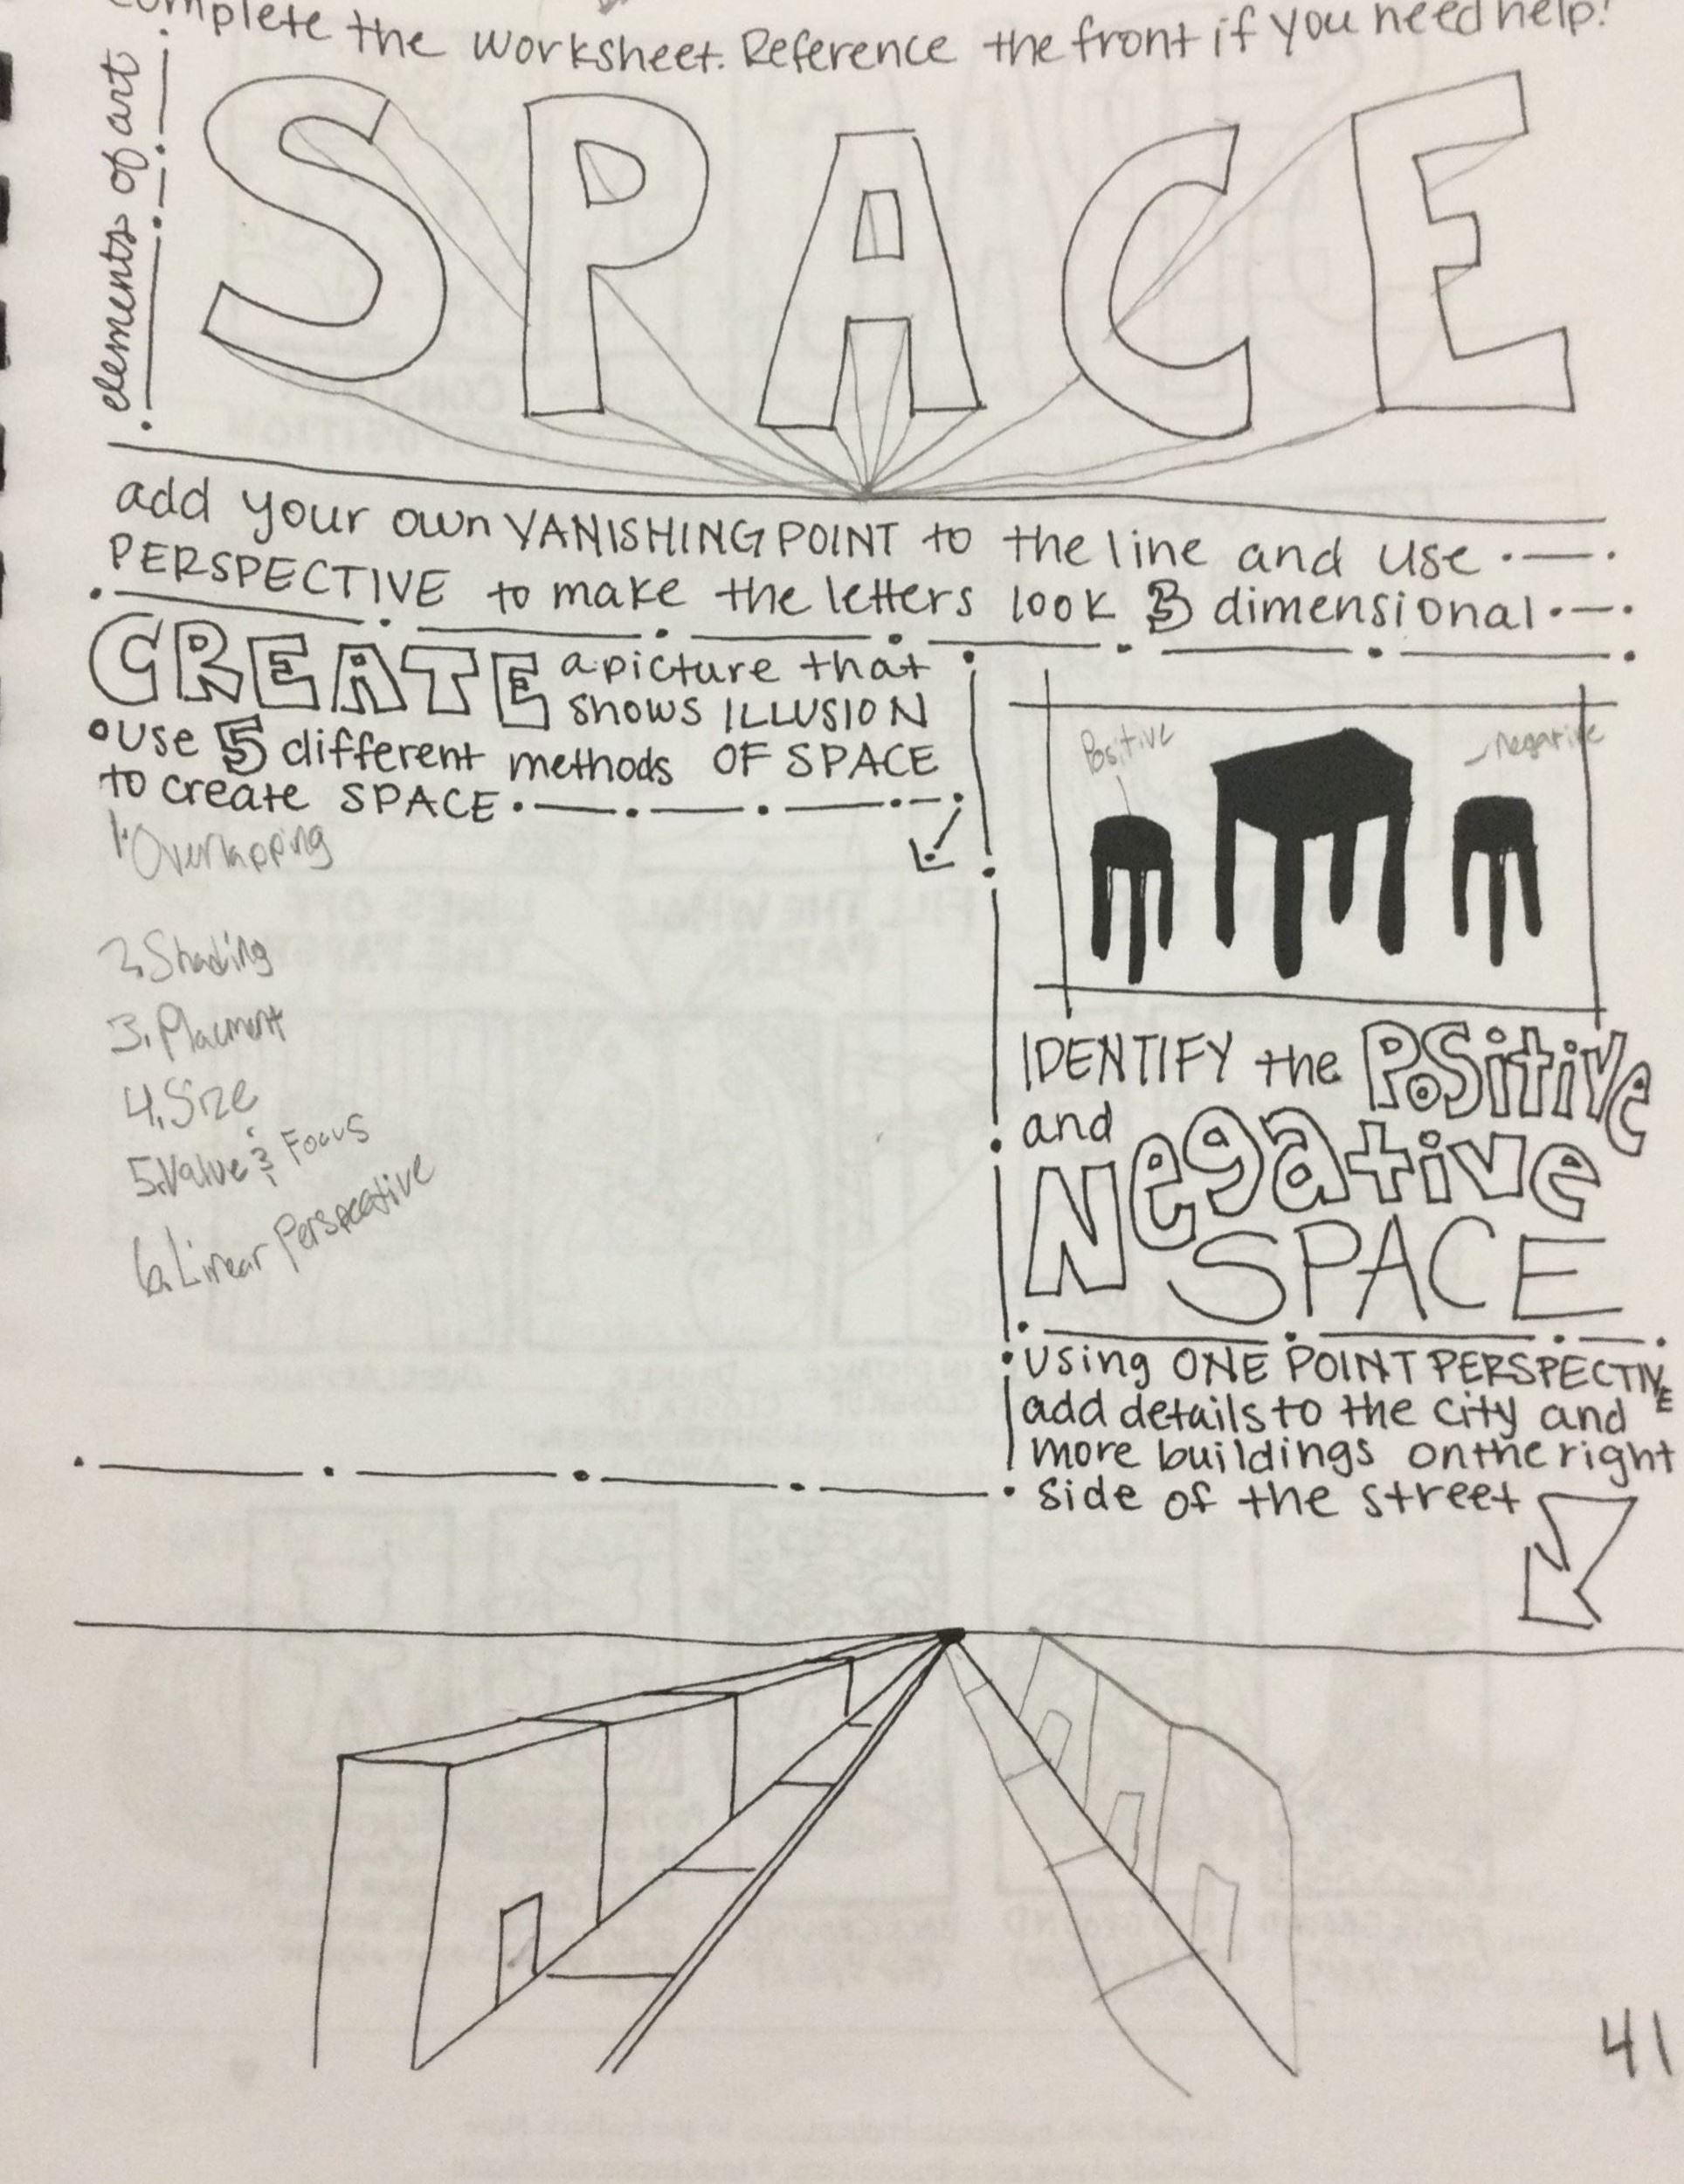 complete the worksheet. Reference the front if you need help!
elements of art
SPACE
add your own VANISHING POINT to the line and use
PERSPECTIVE to make the letters look 3 dimensional
CREATE a picture that
shows ILLUSION
OF SPACE
• use 5 different methods
to create SPACE
1. Overlapping
2. Shading
3. Placment
4. Size
5. Value & Focus
6. Linear Perspective
Positive
negative
IDENTIFY the POSitive
and
Negative
SPACE
• using ONE POINT PERSPECTIVE
add details to the city and
more buildings on the right
side of the street
41